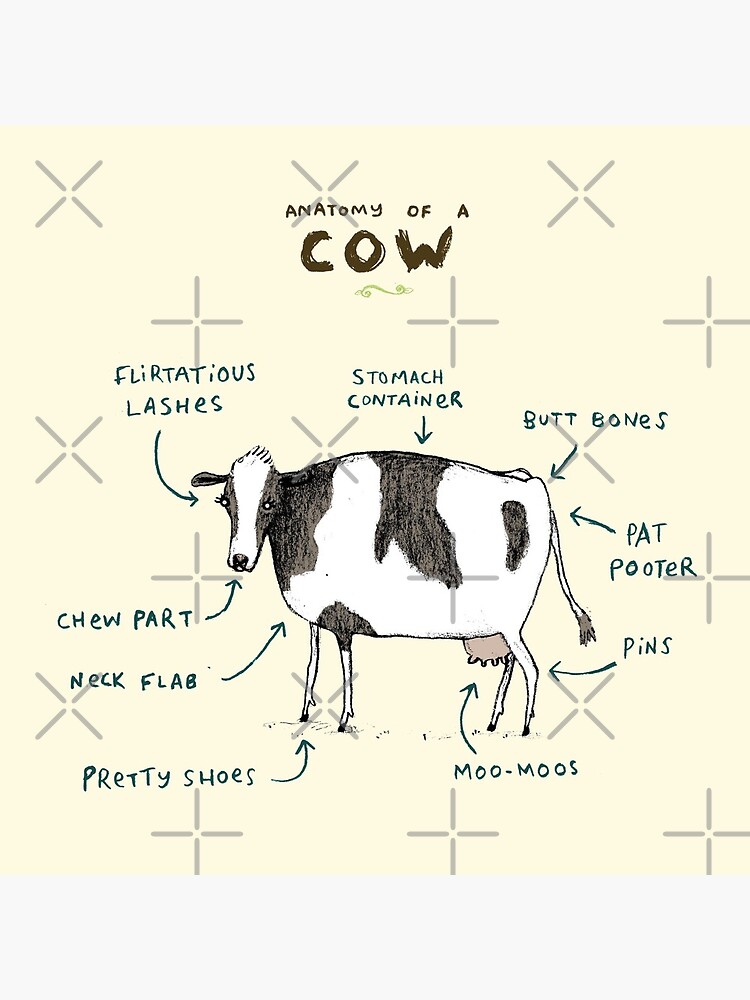 ANATOMY OF A
COW
FLIRTATIOUS
LASHES
STOMACH
CONTAINER
BUTT BONES
PAT
POOTER
CHEW PART
PINS
NECK FLAB
PRETTY SHOES
MOO-MOOS